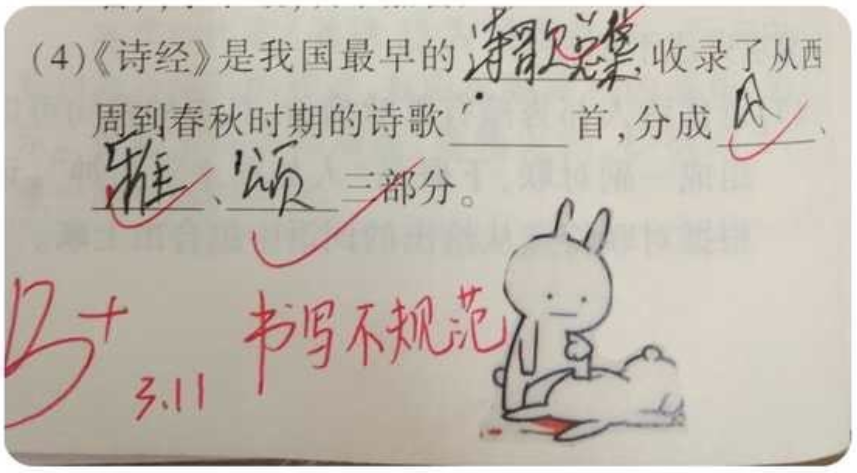 (4)《诗经》是我国最早的 诗歌总集, 收录了从西
周到春秋时期的诗歌______首,分成 风、
雅、颂 三部分。
B+ 3.11 书写不规范